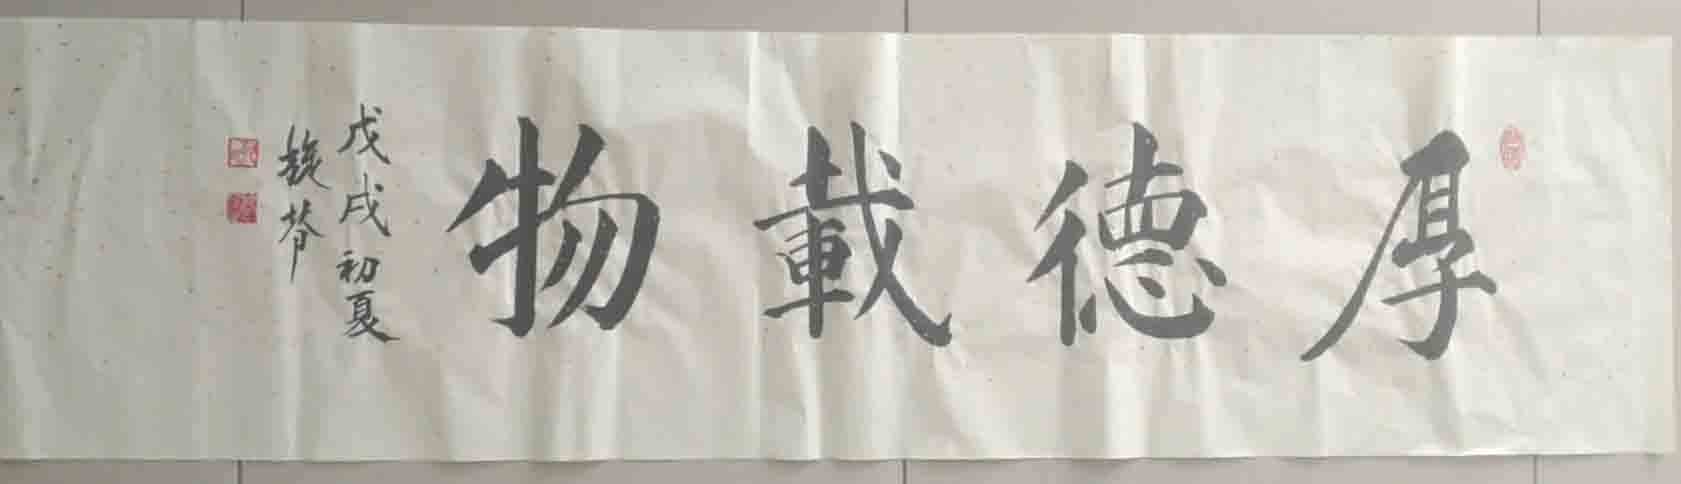 厚德載物
戊戌初夏